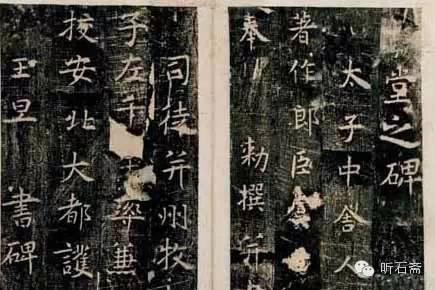 堂之碑
太子中舍人
著作郎臣
奉 勅撰并
司徒并州牧
子左千 率兼
挍安北大都護
王旦 書碑
听石斋